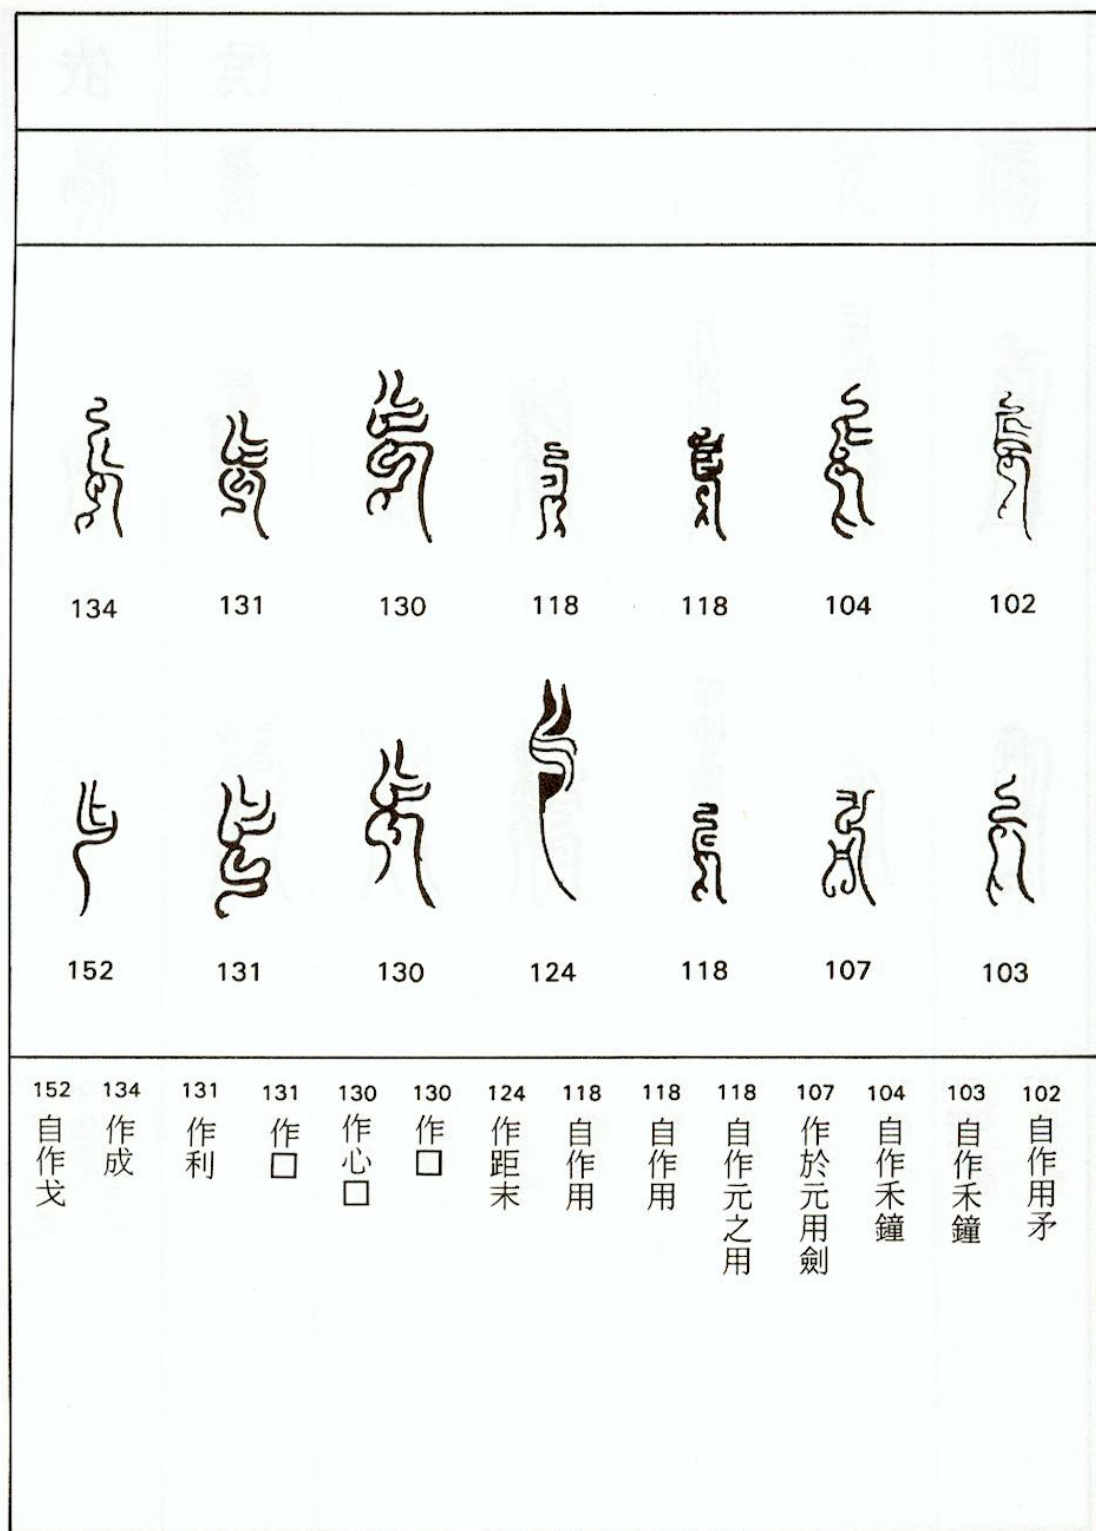 102
104
118
118
130
131
134
103
107
118
124
130
131
152
102 自作用矛
103 自作禾鐘
104 自作禾鐘
107 作於元用劍
118 自作元之用
118 自作用
118 自作用
124 作距末
130 作□
130 作心□
131 作□
131 作利
134 作成
152 自作戈